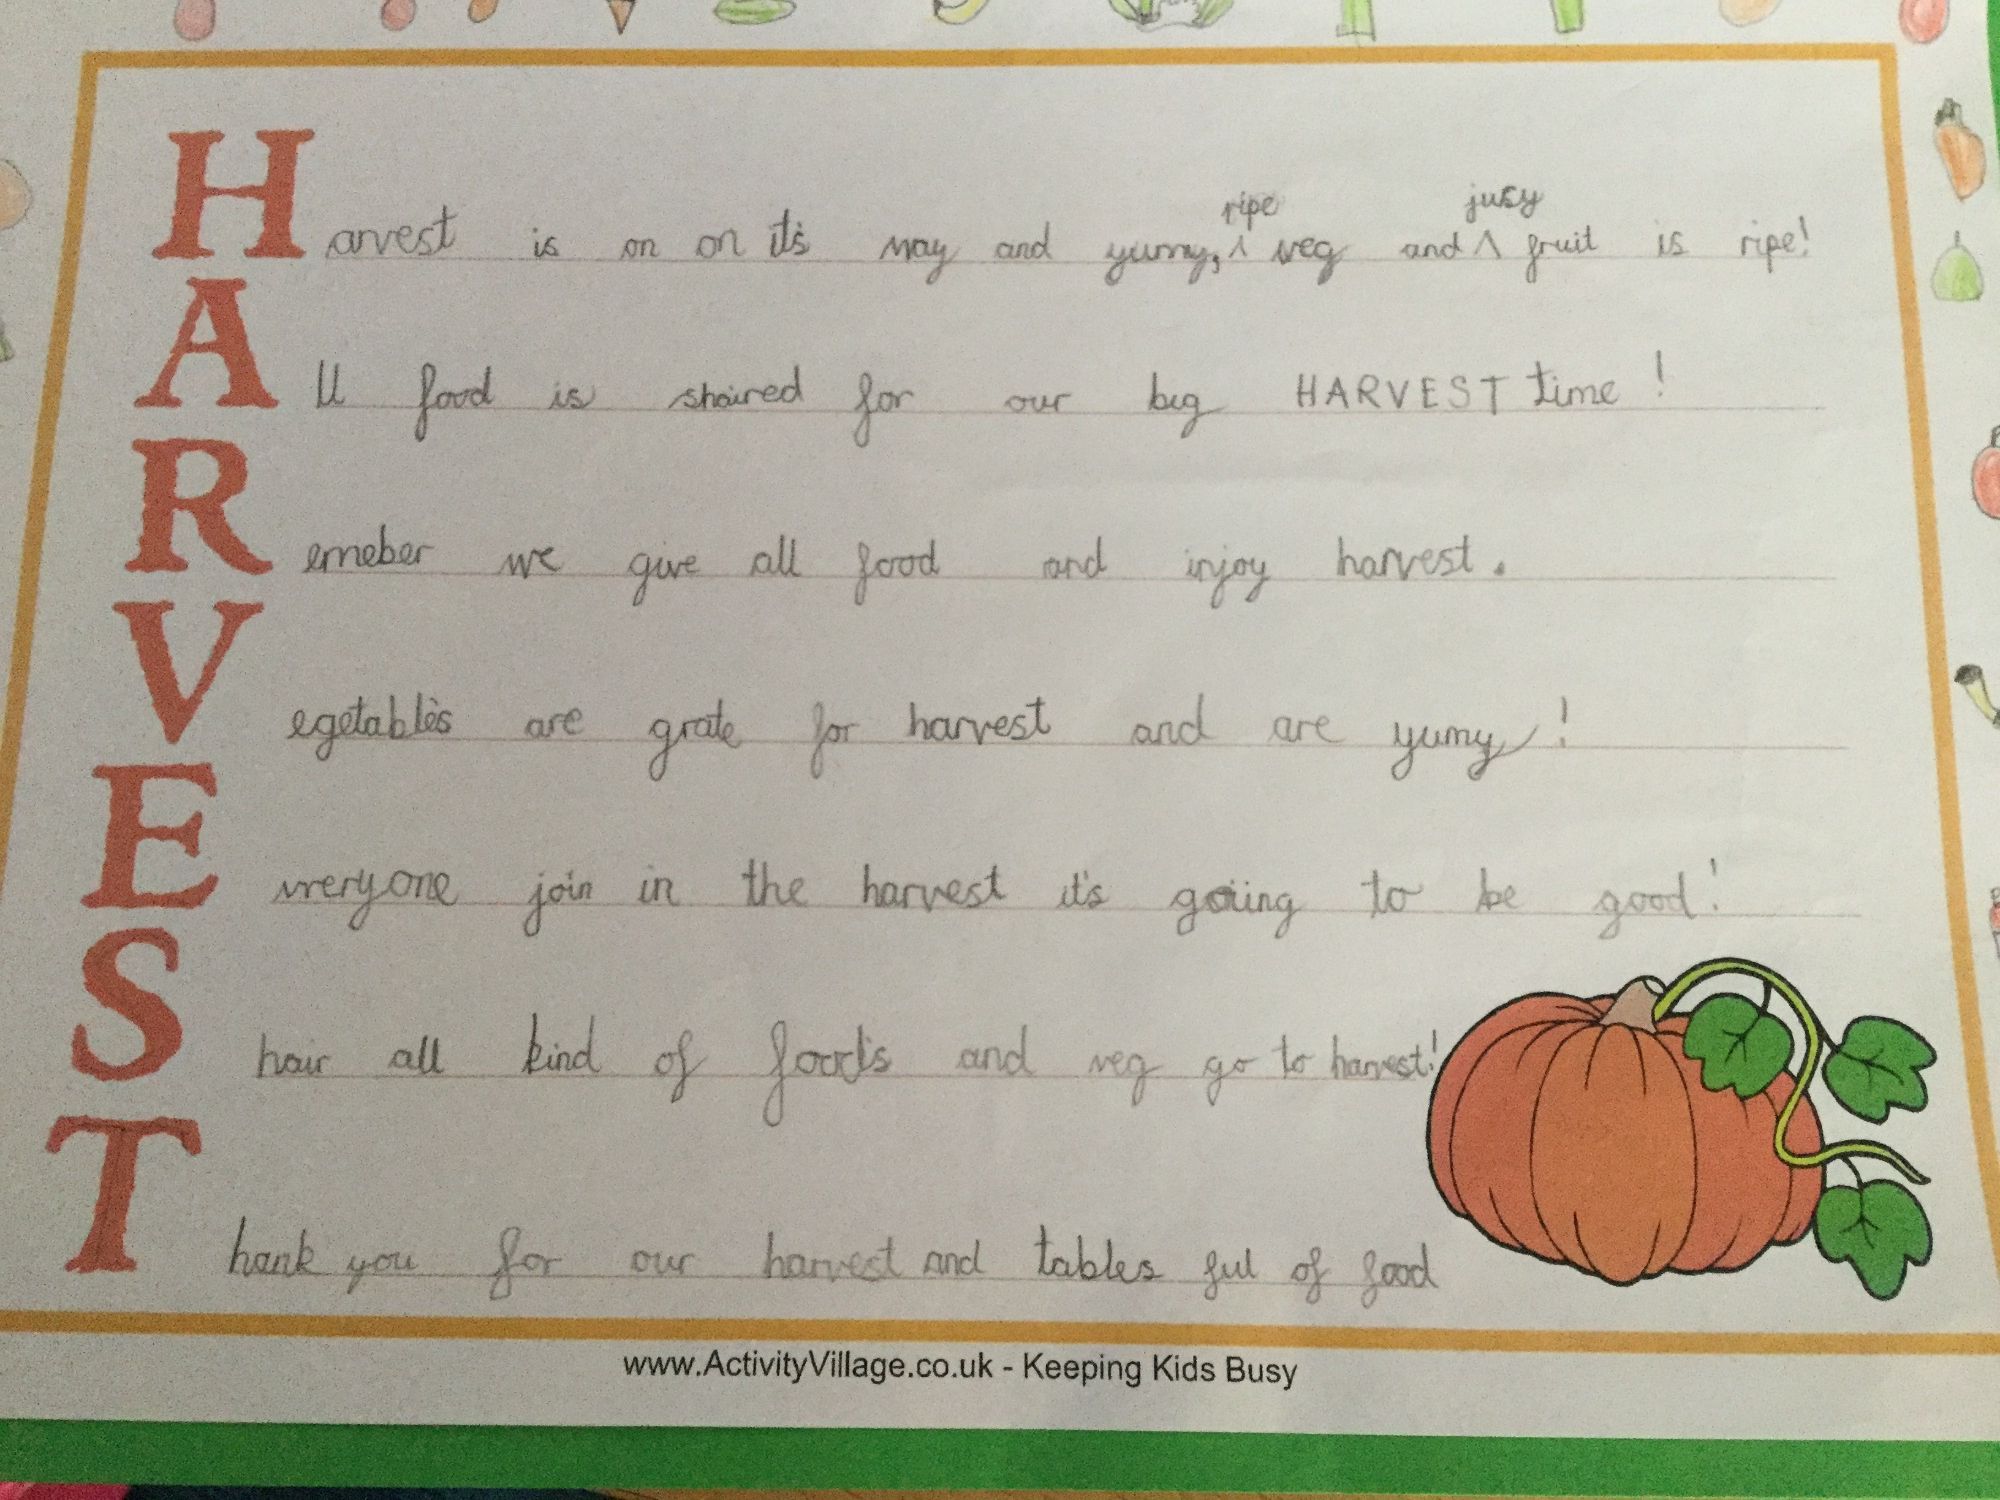 Harvest is on on it's way and yumy, ripe veg and jusy fruit is ripe!
All food is shaired for our big HARVEST time!
Remeber we give all food and injoy harvest.
Vegetables are grate for harvest and are yumy!
Evreryone join in the harvest it's going to be good!
Shair all kind of foods and veg go to harvest!
Thank you for our harvest and tables ful of food
www.ActivityVillage.co.uk - Keeping Kids Busy